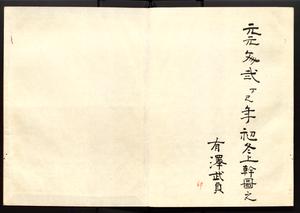 元文弐丁巳年初冬上幹圖之
有澤武貞